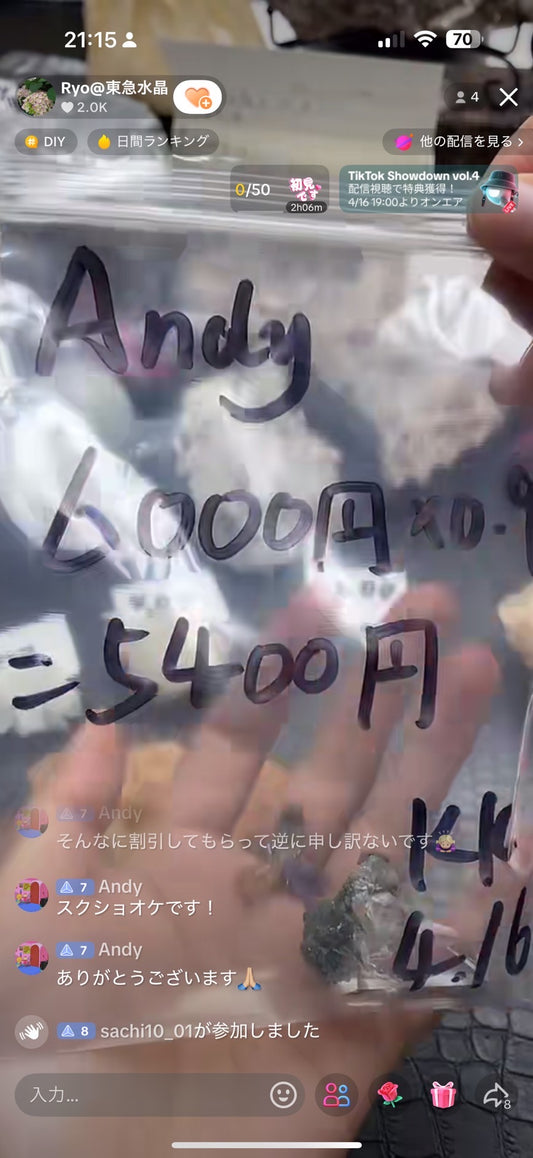 21:15
70
Ryo@東急水晶
2.0K
4
DIY
日間ランキング
他の配信を見る
0/50
初見です
2h06m
TikTok Showdown vol.4
配信視聴で特典獲得！
4/16 19:00よりオンエア
Andy
6000円×0.9
=5400円
KK
4.16
7 Andy
そんなに割引してもらって逆に申し訳ないです🙇
7 Andy
スクショオケです！
7 Andy
ありがとうございます🙏🏻
8 sachi10_01が参加しました
入力...
8